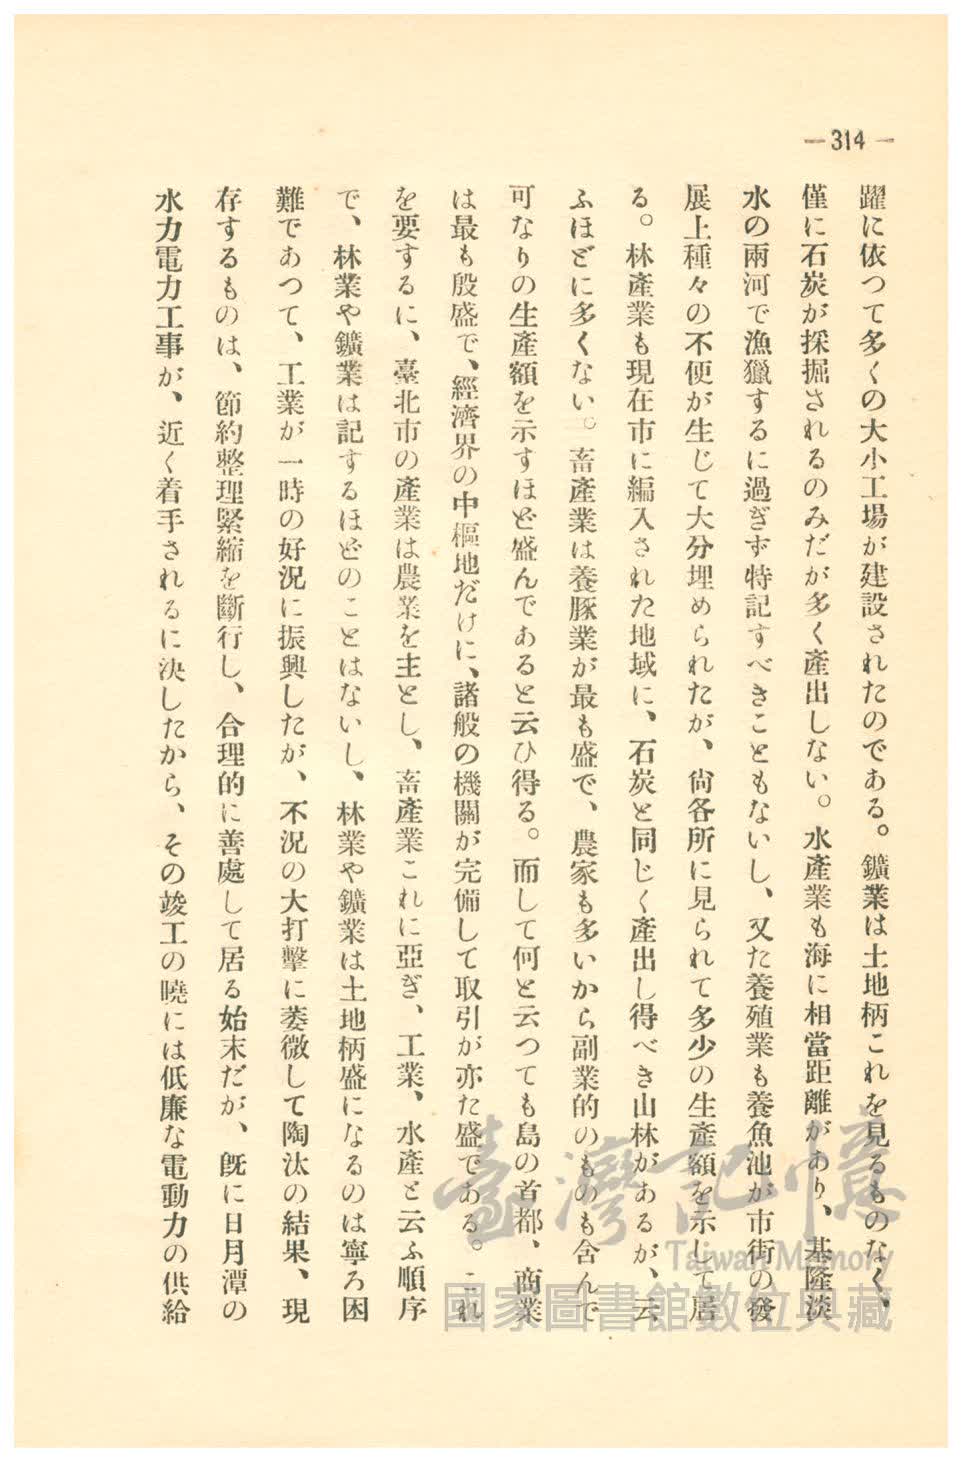 —314—
躍に依つて多くの大小工場が建設されたのである。鑛業は土地柄これを見るものなく、
僅に石炭が採掘されるのみだが多く產出しない。水產業も海に相當距離があり、基隆淡
水の兩河で漁獵するに過ぎず特記すべきこともないし、又た養殖業も養魚池が市街の發
展上種々の不便が生じて大分埋められたが、尙各所に見られて多少の生產額を示して居
る。林產業も現在市に編入された地域に、石炭と同じく產出し得べき山林があるが、云
ふほどに多くない。畜產業は養豚業が最も盛で、農家も多いから副業的のものも含んで
可なりの生產額を示すほど盛んであると云ひ得る。而して何と云つても島の首都、商業
は最も殷盛で、經濟界の中樞地だけに、諸般の機關が完備して取引が亦た盛である。これ
を要するに、臺北市の產業は農業を主とし、畜產業これに亞ぎ、工業、水產と云ふ順序
で、林業や鑛業は記するほどのことはないし、林業や鑛業は土地柄盛になるのは寧ろ困
難であつて、工業が一時の好況に振興したが、不況の大打擊に萎微して陶汰の結果、現
存するものは、節約整理緊縮を斷行し、合理的に善處して居る始末だが、旣に日月潭の
水力電力工事が、近く着手されるに決したから、その竣工の曉には低廉な電動力の供給
臺灣記憶
Taiwan Memory
國家圖書館數位典藏